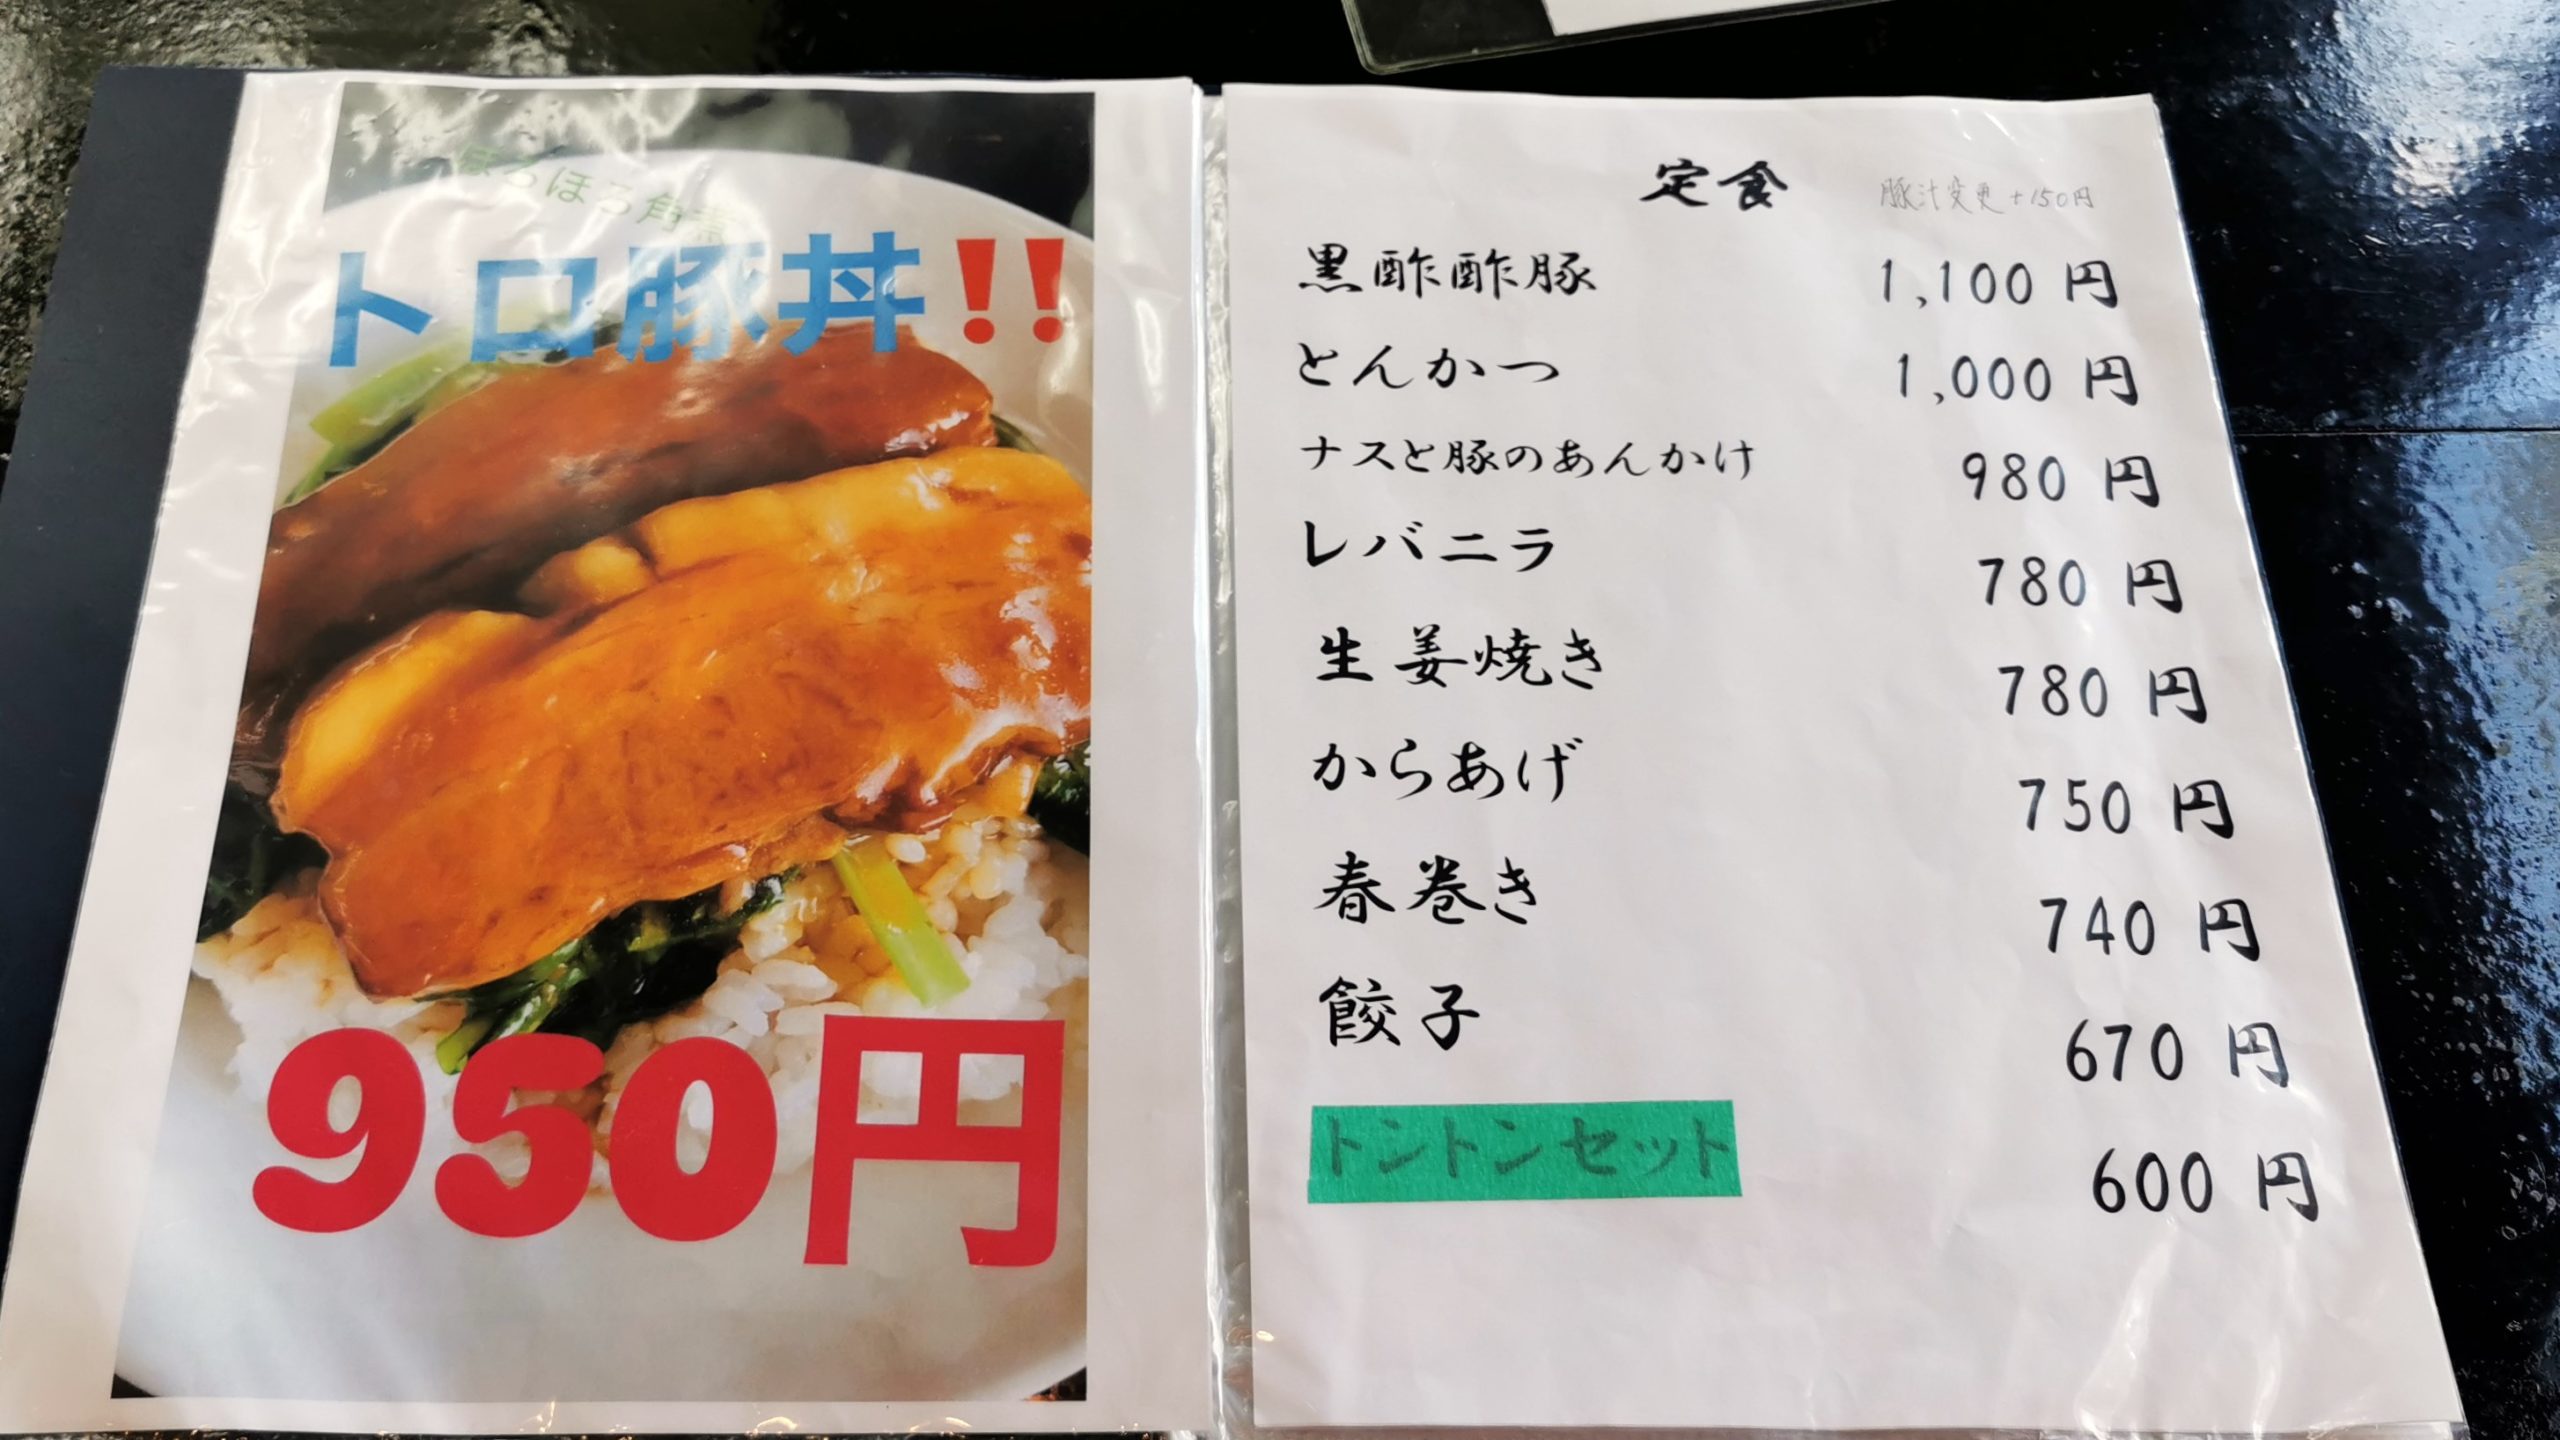 ほろほろ角煮
トロ豚丼!!
950円
定食 豚汁変更+150円
黒酢酢豚 1,100円
とんかつ 1,000円
ナスと豚のあんかけ 980円
レバニラ 780円
生姜焼き 780円
からあげ 750円
春巻き 740円
餃子 670円
トントンセット 600円